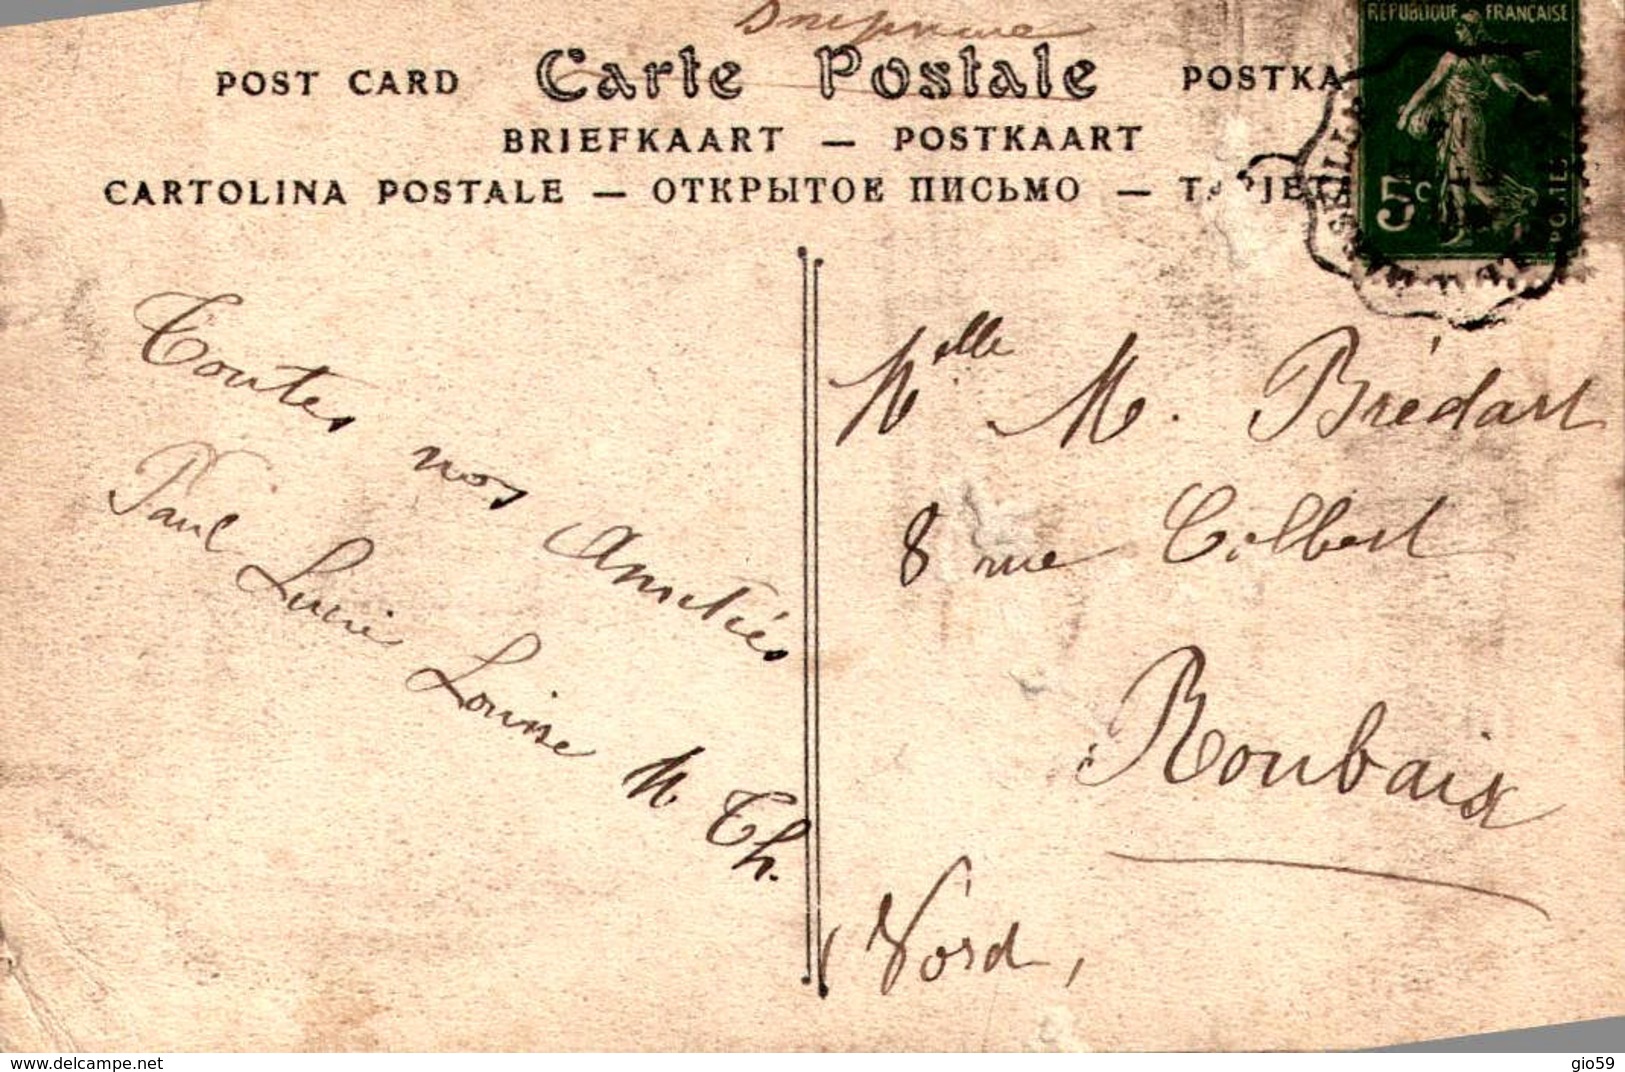 Imprimé
POST CARD Carte Postale POSTKA
BRIEFKAART — POSTKAART
CARTOLINA POSTALE — ОТКРЫТОЕ ПИСЬМО —
RÉPUBLIQUE FRANÇAISE
5c
POSTES
Toutes nos Amitiés
Paul Lucie Louise M. Th.
Melle M. Brédart
8 rue Colbert
Roubaix
(Nord,
delcampe.net
gio59